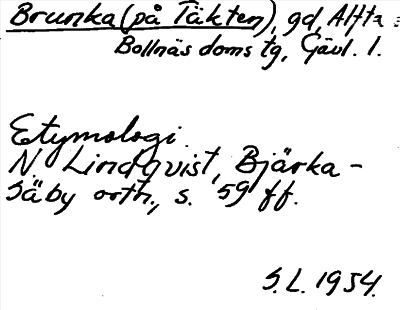 Brunka (på Täkten), gd, Alfta :
Bollnäs doms tg, Gävl. l.
Etymologi.
N. Lindqvist, Bjärka-
Säby ortn., s. 59 ff.
S.L. 1954.